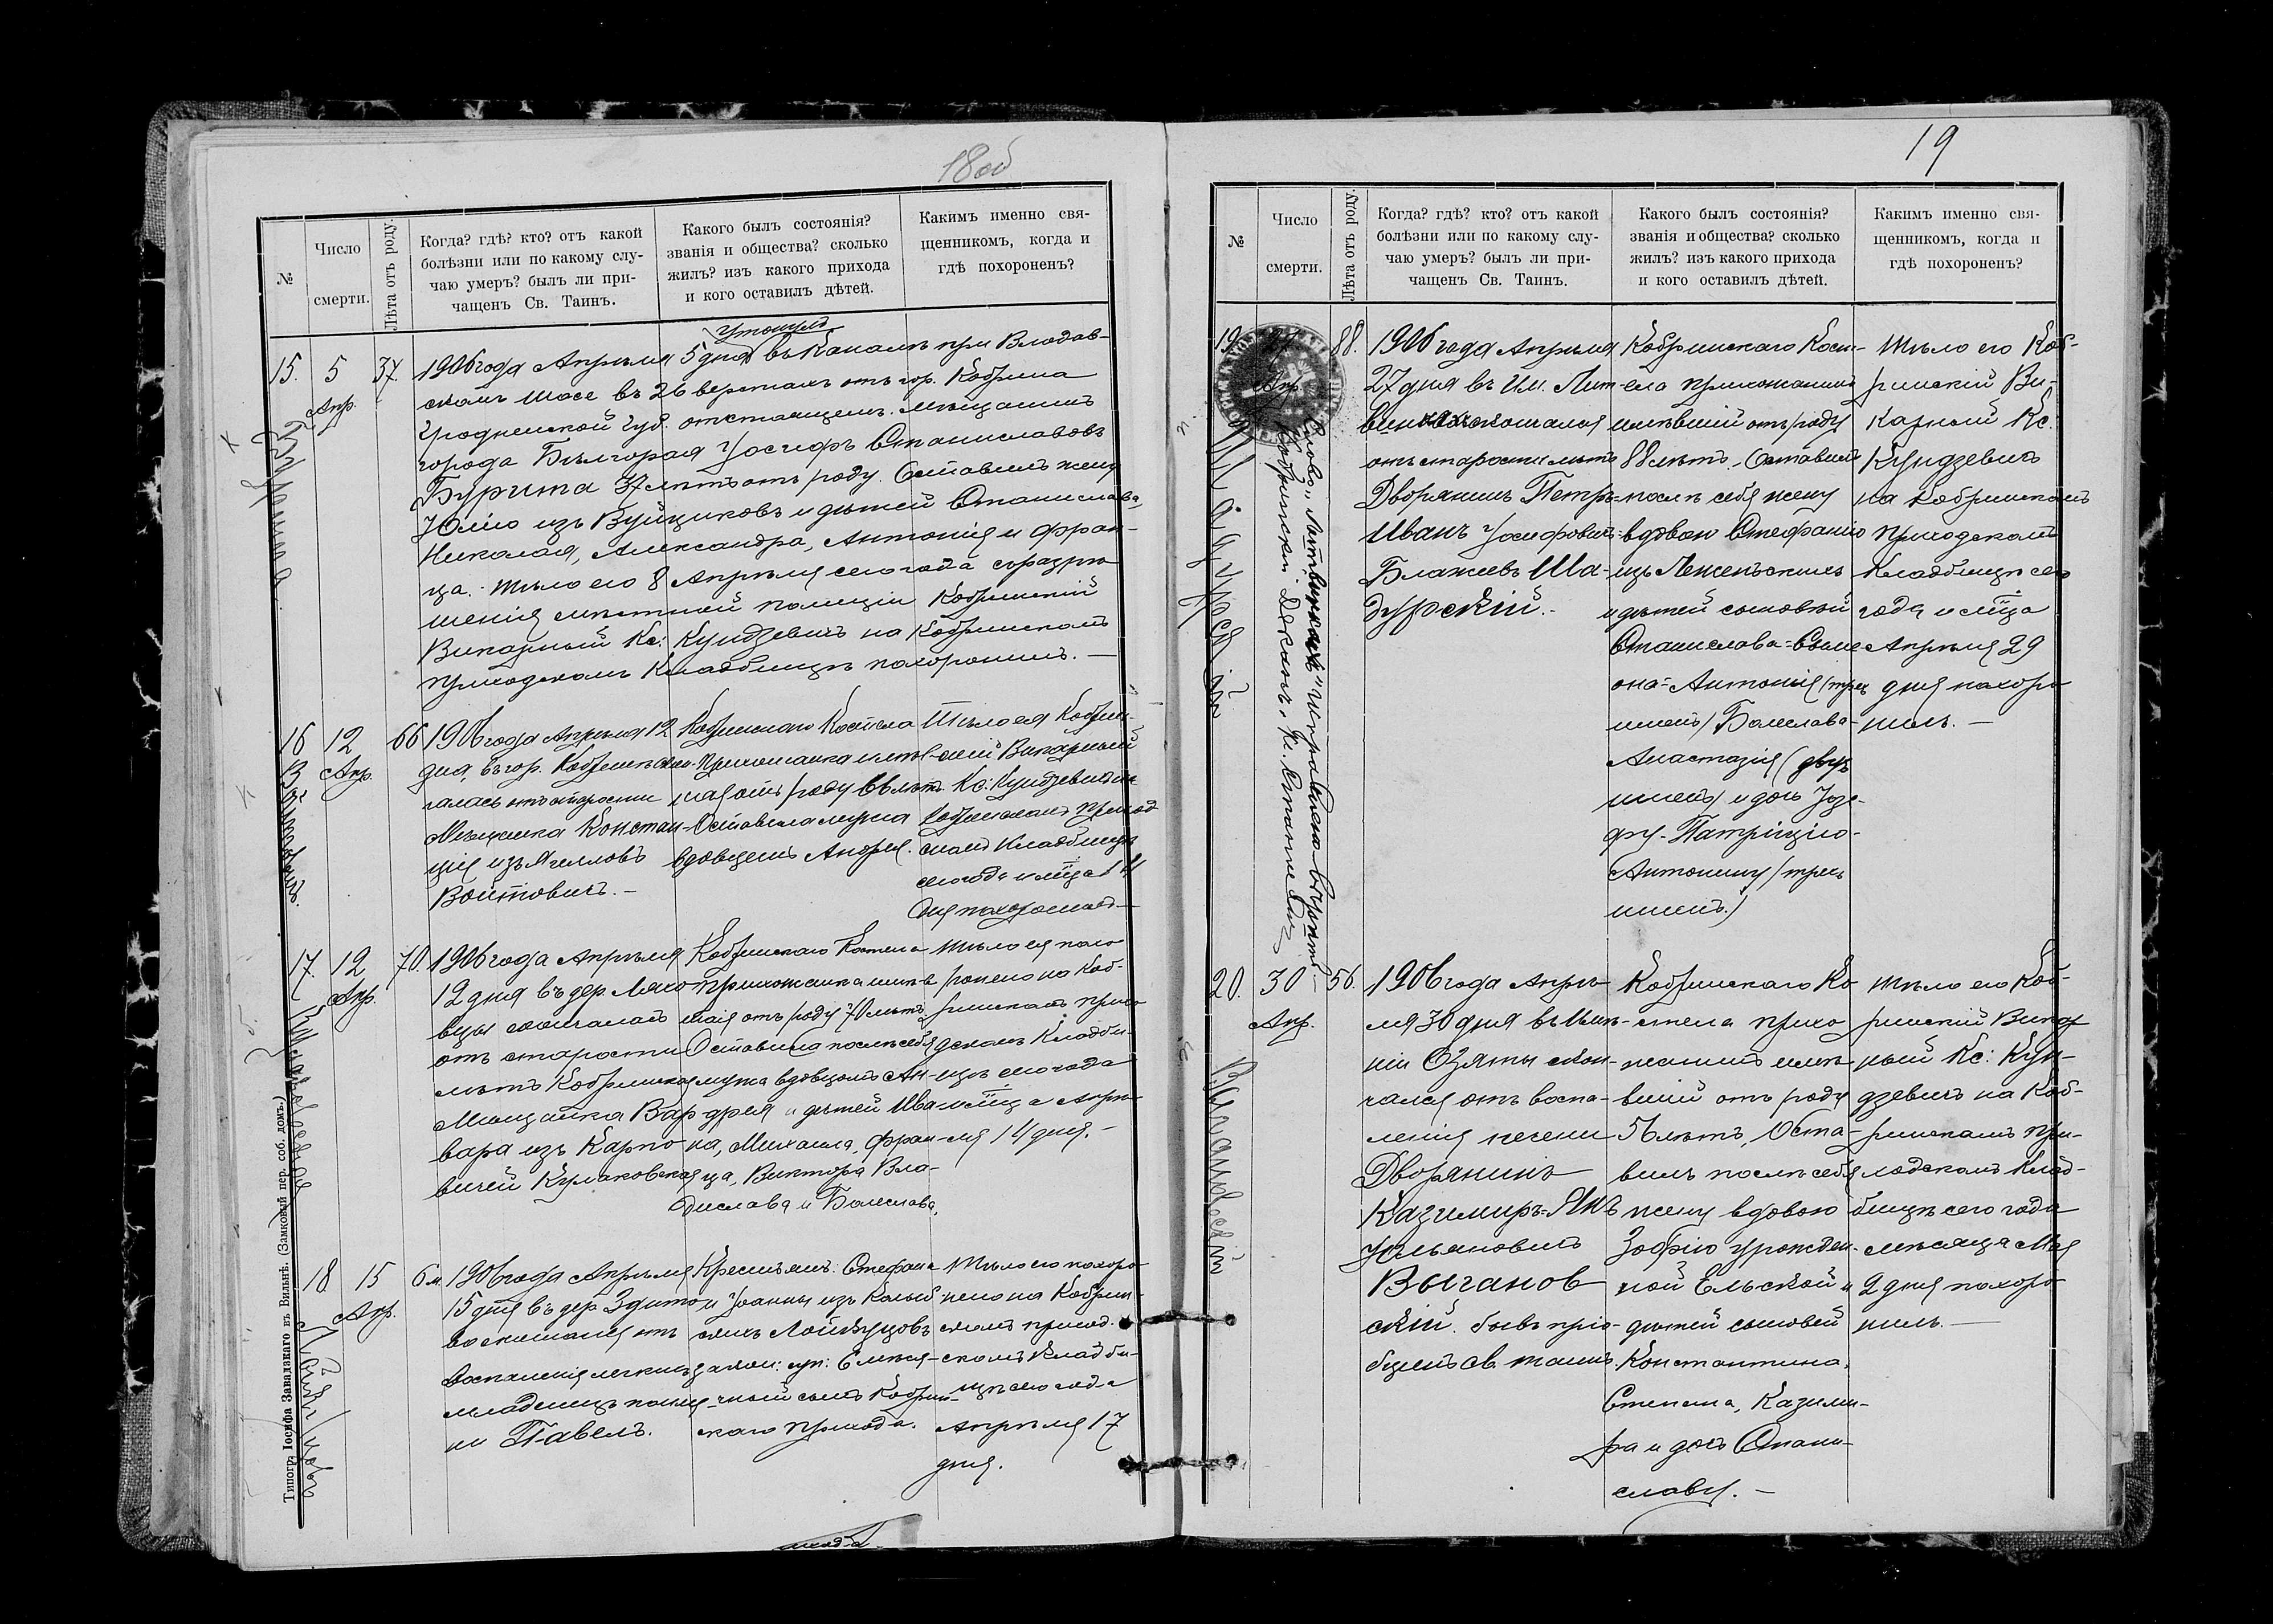 18 об
№
Число
смерти.
Лѣта отъ роду.
Когда? гдѣ? кто? отъ какой
болѣзни или по какому слу-
чаю умеръ? былъ ли при-
чащенъ Св. Таинъ.
Какого былъ состоянія?
званія и общества? сколько
жилъ? изъ какого прихода
и кого оставилъ дѣтей.
Какимъ именно свя-
щенникомъ, когда и
гдѣ похороненъ?
15.
5
Апр.
37.
утонулъ
1906 года Апрѣля 5 дня въ Каналѣ при Влодав-
скомъ шосе въ 26 верстахъ отъ гор. Кобрина
Гродненской губ. отстоящемъ. Мѣщанинъ
города Бѣлгорая Іосифъ Станиславовъ
Бурита 37 лѣтъ отъ роду. Оставилъ жену
Юлію изъ Вуйциковъ и дѣтей Станислава,
Николая, Александра, Антонія и Фран-
ца. Тѣло его 8 Апрѣля сего года съ разрѣ-
шенія мѣстной полиціи Кобринскій
Викарный Кс: Кундзевичъ на Кобринскомъ
приходскомъ Кладбищѣ похоронилъ. —
16
Войтовичъ.
12
Апр.
66
1906 года Апрѣля 12
дня, въ гор. Кобринѣ скон-
чалась отъ старости
Мѣщанка Констан-
ція изъ Ягелловъ
Войтовичъ. —
Кобринскаго Костела
Прихожанка имѣв-
шая отъ роду 66 лѣтъ
Оставила мужа
вдовцемъ Андрея.
Тѣло ея Кобрин-
скій Викарный
Кс: Кундзевичъ на
Кобринскомъ приход
скомъ Кладбищѣ
сего года и мѣца 14
дня похоронилъ —
17.
Кулаковская
12
Апр.
70.
1906 года Апрѣля
12 дня въ дер. Лихо
вцы скончалась
отъ старости
лѣтъ Кобринская
Мѣщанка Вар-
вара изъ Карпо-
вичей Кулаковская
Кобринскаго Костела
прихожанка имѣв
шая отъ роду 70 лѣтъ.
Оставила послѣ себя
мужа вдовцомъ Ан-
дрея и дѣтей Ива-
на, Михаила, Фран-
ца, Виктора Вла-
дислава и Болеслава.
Тѣло ея похо
ронено на Коб-
ринскомъ прихо
дскомъ Кладби-
щѣ сего года
мѣца Апрѣ-
ля 14 дня. —
18
15
Апр.
6 м.
1906 года Апрѣля
15 дня въ дер. Здито
во скончался отъ
воспаленія легкихъ
младенецъ по име-
ни Павелъ.
Крестьянъ: Стефана
и Іоанны изъ
закон: суп: 6 мѣся-
чный сынъ Кобрин-
скаго прихода.
Тѣло его похоро
нено на Кобрин-
скомъ приход-
скомъ Кладби-
щѣ сего года
Апрѣля 17
дня.
Типогр. Іосифа Завадзкаго въ Вильнѣ. (Замковый пер. соб. домъ.)
19
№
Число
смерти.
Лѣта отъ роду.
Когда? гдѣ? кто? отъ какой
болѣзни или по какому слу-
чаю умеръ? былъ ли при-
чащенъ Св. Таинъ.
Какого былъ состоянія?
званія и общества? сколько
жилъ? изъ какого прихода
и кого оставилъ дѣтей.
Какимъ именно свя-
щенникомъ, когда и
гдѣ похороненъ?
19.
Шадурскій
Апр.
88.
1906 года Апрѣля
27 дня въ им. Лит-
винкахъ скончался
отъ старости лѣтъ
Дворянинъ Петръ-
Иванъ Іосифовичъ-
Блажеевъ Ша-
дурскій. —
Кобринскаго Кост-
ела прихожанинъ
имѣвшій отъ роду
88 лѣтъ. Оставилъ
послѣ себя жену
вдовою Стефанію
изъ
и дѣтей сыновей
Станислава-
Антонія (трех
именъ) Болеслава-
Анастазія (двух
именъ) и дочь Юзе-
фу-Патрицію-
Антонину (трехъ
именъ.)
Тѣло его Коб-
ринскій Ви-
карный Кс.
Кундзевичъ
на Кобринскомъ
приходскомъ
Кладбищѣ сего
года и мѣца
Апрѣля 29
дня похоро
нилъ. —
20.
Выгановскій
30
Апр.
56.
1906 года Апрѣ-
ля 30 дня въ Имѣ-
ніи Озяты скон-
чался отъ воспа-
ленія печени
Дворянинъ
Казимиръ-Янъ
Юльяновичъ
Выганов
скій. бывъ прiо-
бщенъ св. таинъ.
Кобринскаго Ко
стела прихо
жанинъ имѣ-
вшій отъ роду
56 лѣтъ, Оста-
вилъ послѣ себя
жену вдовою
Зофію урожден-
ной Ельской и
дѣтей сыновей
Константина,
Степана, Казими-
ра и дочь Стани-
славу. —
Тѣло его Коб-
ринскій Викар
ный Кс: Кун-
дзевичъ на Коб-
ринскомъ при-
ходскомъ Клад-
бищѣ сего года
мѣсяца Мая
2 дня похоро
нилъ. —